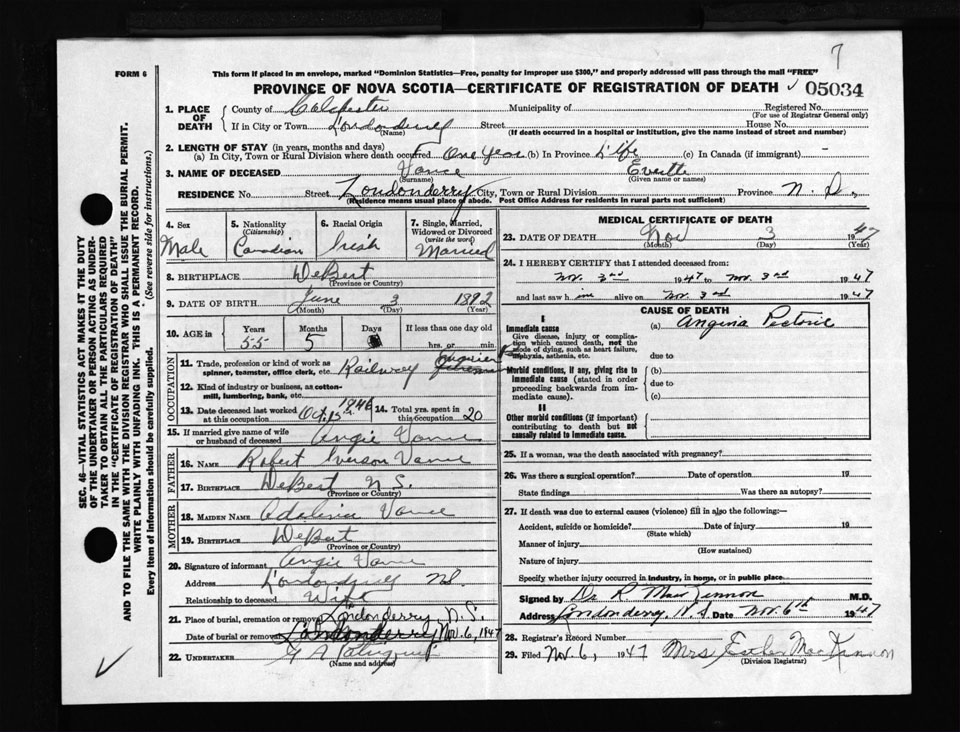 7
FORM 6
This form if placed in an envelope, marked "Dominion Statistics—Free, penalty for improper use $300," and properly addressed will pass through the mail "FREE"
PROVINCE OF NOVA SCOTIA—CERTIFICATE OF REGISTRATION OF DEATH 05034
1. PLACE OF DEATH County of Colchester Municipality of Registered No.
(For use of Registrar General only)
If in City or Town Londonderry Street House No.
(Name) (If death occurred in a hospital or institution, give the name instead of street and number)
2. LENGTH OF STAY (in years, months and days)
(a) In City, Town or Rural Division where death occurred One Year (b) In Province Life (c) In Canada (if immigrant) -
3. NAME OF DECEASED Vance Everette
(Surname) (Given name or names)
RESIDENCE No. Street Londonderry City, Town or Rural Division Province N. S.
(Residence means usual place of abode. Post Office Address for residents in rural parts not sufficient)
4. Sex
Male
5. Nationality (Citizenship)
Canadian
6. Racial Origin
Irish
7. Single, Married, Widowed or Divorced (write the word)
Married
8. BIRTHPLACE DeBert
(Province or Country)
9. DATE OF BIRTH June 3 1892
(Month) (Day) (Year)
10. AGE in Years Months Days If less than one day old
55 5 hrs. or min.
OCCUPATION
11. Trade, profession or kind of work as spinner, teamster, office clerk, etc. Railway
12. Kind of industry or business, as cotton-mill, lumbering, bank, etc.
13. Date deceased last worked at this occupation Oct. 15 1946 14. Total yrs. spent in this occupation 20
15. If married give name of wife or husband of deceased Angie Vance
FATHER
16. NAME Robert Iverson Vance
17. BIRTHPLACE DeBert N S.
(Province or Country)
MOTHER
18. MAIDEN NAME Adelina Vance
19. BIRTHPLACE DeBert
(Province or Country)
20. Signature of informant Angie Vance
Address Londonderry N.S.
Relationship to deceased Wife
21. Place of burial, cremation or removal Londonderry N. S.
Date of burial or removal Londonderry Nov. 6, 1947
22. UNDERTAKER G A
(Name and address)
MEDICAL CERTIFICATE OF DEATH
23. DATE OF DEATH Nov 3 1947
(Month) (Day) (Year)
24. I HEREBY CERTIFY that I attended deceased from:
Nov. 2nd 1947 to Nov. 3rd 1947
and last saw him alive on Nov. 3rd 1947
CAUSE OF DEATH
I
Immediate cause
Give disease, injury or complication which caused death, not the mode of dying, such as heart failure, asphyxia, asthenia, etc.
(a) Angina Pectoris
due to
Morbid conditions, if any, giving rise to immediate cause (stated in order proceeding backwards from immediate cause).
(b)
due to
(c)
II
Other morbid conditions (if important) contributing to death but not causally related to immediate cause.
25. If a woman, was the death associated with pregnancy?
26. Was there a surgical operation? Date of operation 19
State findings Was there an autopsy?
27. If death was due to external causes (violence) fill in also the following:—
Accident, suicide or homicide? Date of injury 19
(State which)
Manner of injury
(How sustained)
Nature of injury
Specify whether injury occurred in industry, in home, or in public place
Signed by Dr R MacKinnon M.D.
Address Londonderry, N. S Date Nov. 6th 1947
28. Registrar's Record Number
29. Filed Nov. 6, 1947 Mrs Esther MacKinnon
(Division Registrar)
SEC. 46—VITAL STATISTICS ACT MAKES IT THE DUTY
OF THE UNDERTAKER OR PERSON ACTING AS UNDER-
TAKER TO OBTAIN ALL THE PARTICULARS REQUIRED
IN THE "CERTIFICATE OF REGISTRATION OF DEATH"
AND TO FILE THE SAME WITH THE DIVISION REGISTRAR WHO SHALL ISSUE THE BURIAL PERMIT.
WRITE PLAINLY WITH UNFADING INK. THIS IS A PERMANENT RECORD.
Every item of information should be carefully supplied. (See reverse side for instructions.)